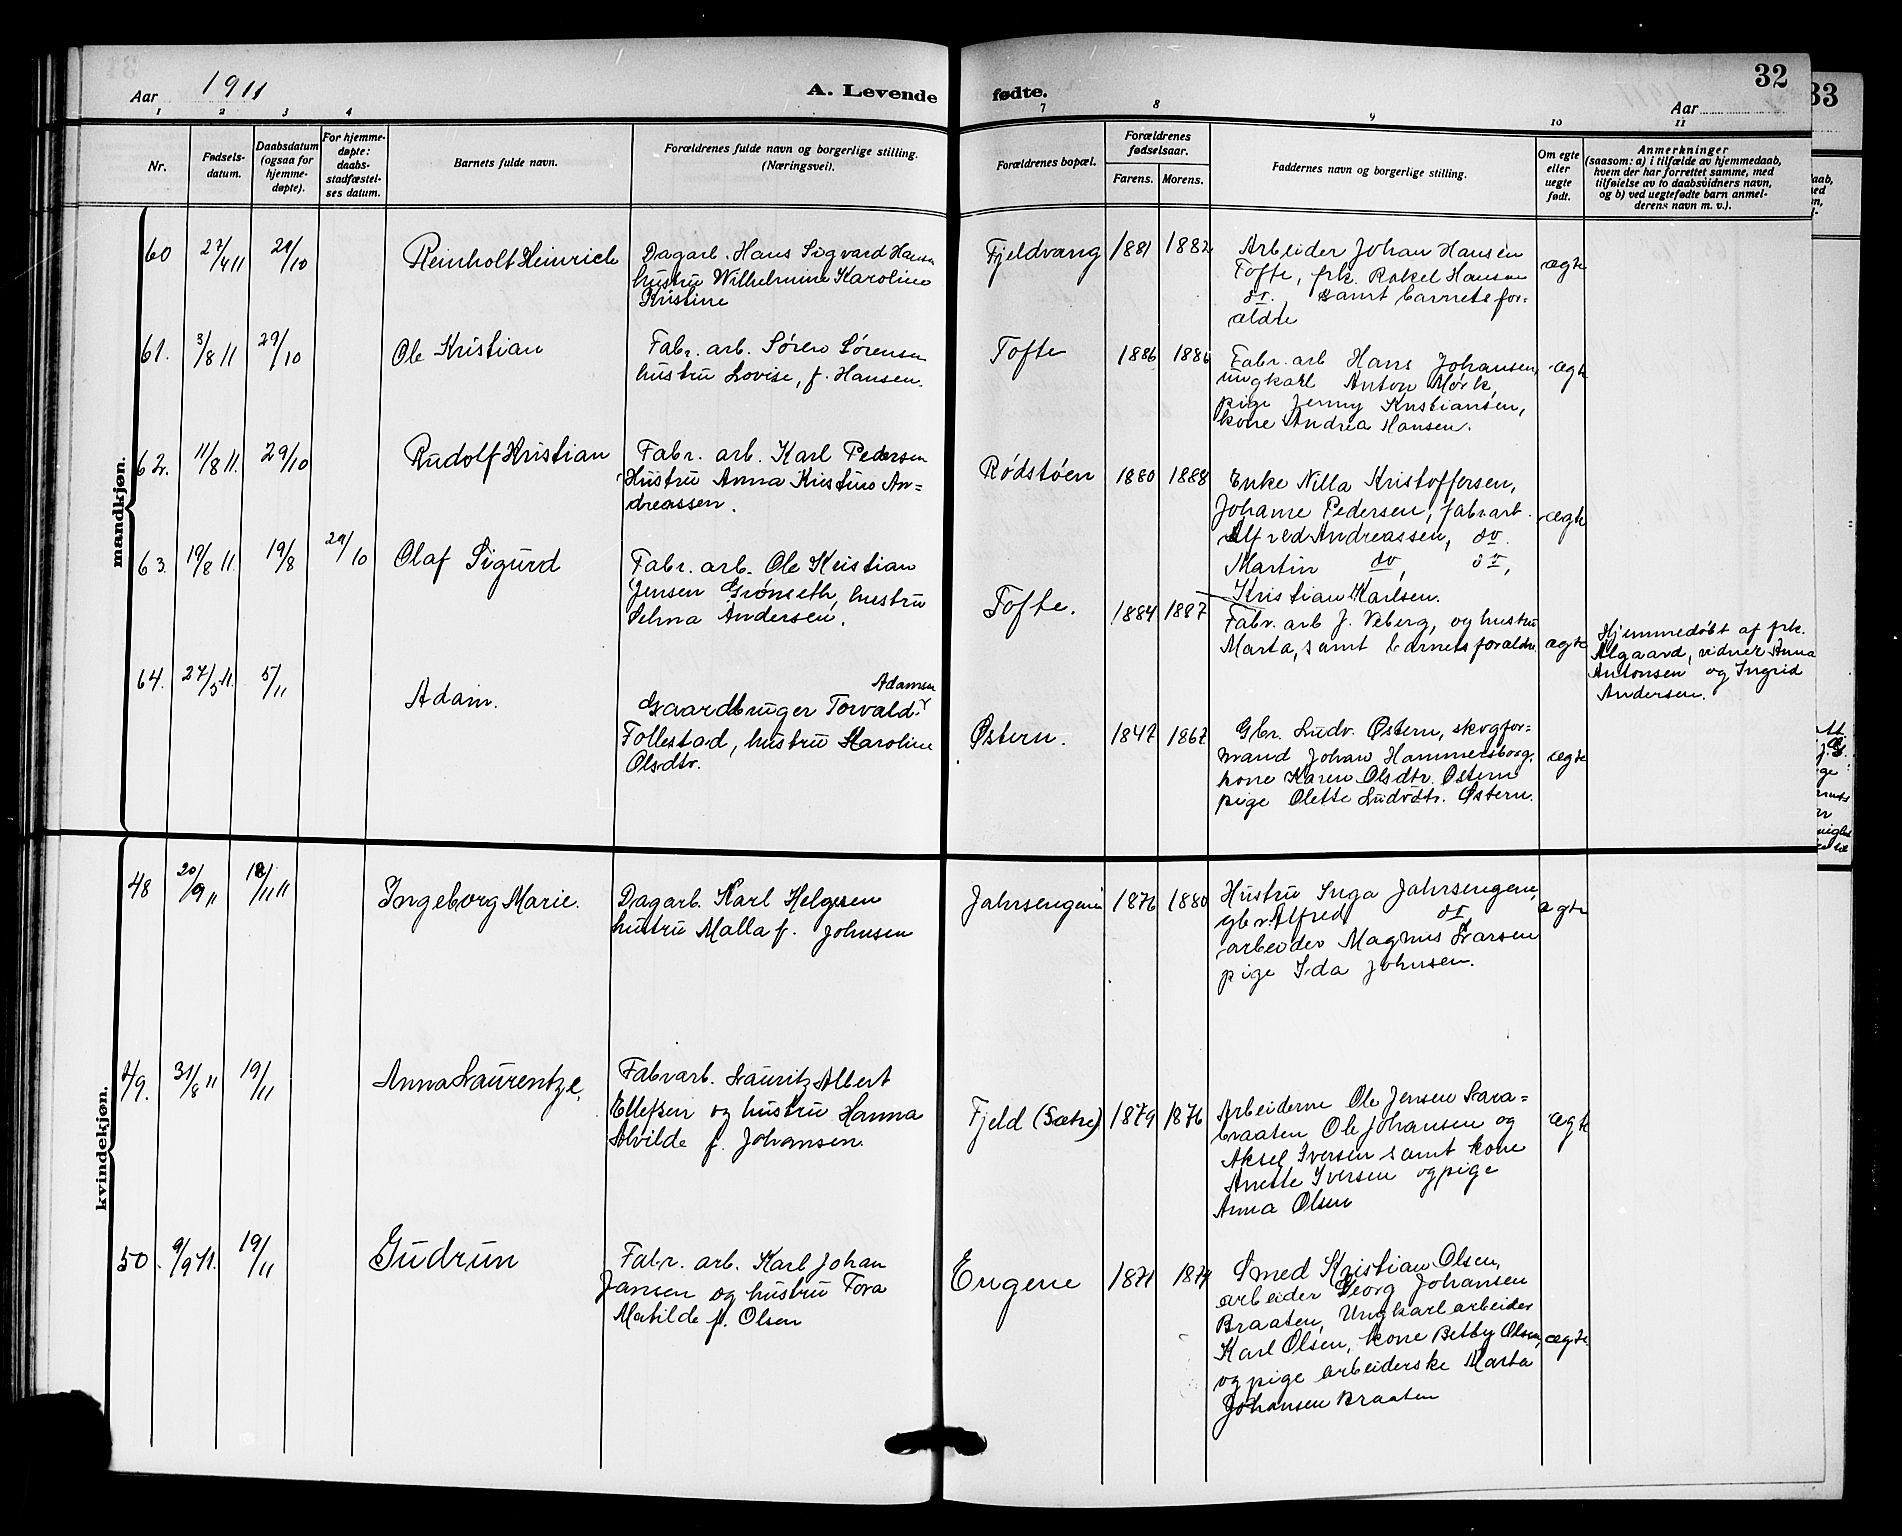 Aar 1911
A. Levende
fødte.
32
Aar
33
1 2 3 4 7 8 9 10 11
Nr.
Fødsels-
datum.
Daabsdatum
(ogsaa for
hjemme-
døpte).
For hjemme-
døpte:
daabs-
stadfæstel-
ses datum.
Barnets fulde navn.
Forældrenes fulde navn og borgerlige stilling.
(Næringsvei).
Forældrenes bopæl.
Forældrenes
fødselsaar.
Farens. Morens.
Faddernes navn og borgerlige stilling.
Om egte
eller
uegte
født.
Anmerkninger
(saasom: a) i tilfælde av hjemmedaab,
hvem der har forrettet samme, med
tilføielse av to daabsvidners navn,
og b) ved uegtefødte barn anmel-
derens navn m. v.).
mandkjøn.
60 27/4 11 29/10 Reinholt Heinrich
Dagarb. Hans Sigvard Hansen
hustru Wilhelmine Karoline
Kristine
Fjeldvang 1881 1882
Arbeider Johan Hansen
Tofte, frk. Rakel Hansen
do. samt barnets for-
ældre
ægte
61. 3/8 11 29/10 Ole Kristian
Fabr. arb. Sören Sörensen
hustru Lovise, f. Hansen.
Tofte 1886 1886
Fabr. arb Hans Johansen,
ungkarl Anton Mörk,
pige Jenny Kristiansen,
kone Andrea Hansen.
ægte
62. 11/8 11. 29/10 Rudolf Kristian
Fabr. arb. Karl Pedersen
Hustru Anna Kristine An-
dreassen.
Rødstøen 1880 1888
Enke Nilla Kristoffersen,
Johanne Pedersen, fabrarb.
Alfred Andreassen, do.
Martin do, do,
Kristian Karlsen.
ægte
63. 19/8 11. 19/8 29/10 Olaf Sigurd
Fabr. arb. Ole Kristian
Jensen Grønseth, hustru
Selma Andersen.
Tofte. 1884 1887
Fabr. arb J. Veberg, og hustru
Marta, samt barnets forældre.
ægte
Hjemmedöbt af frk.
Algaard, vidner Anna
Antonsen og Ingrid
Andersen.
64. 27/5 11. 5/11 Adam.
Adamsen
Gaardbruger Torvald
Follestad, hustru Karoline
Olsdtr.
Østern. 1847 1867
Gbr. Ludv. Østern, skogfor-
mand Johan Hammersborg,
kone Karen Olsdtr. Østern
pige Olette Ludvdtr. Østern.
ægte
kvindekjøn.
48 20/9 11 18/11 11 Ingeborg Marie.
Dagarb. Karl Helgesen
hustru Malla f. Johnsen
Jahrsengene 1876 1880
Hustru Inga Jahrsengene,
gbr. Alfred do,
arbeider Magnus Larsen
pige Ida Johnsen.
ægte
49. 31/8 11 19/11 Anna Laurentze.
Fabrarb. Lauritz Albert
Ellefsen og hustru Hanna
Alvilde f. Johansen.
Fjeld (Sætre) 1879 1876
Arbeiderne Ole Jensen Sara-
braaten Ole Johansen og
Aksel Iversen samt kone
Anette Iversen og pige
Anna Olsen
ægte
50. 9/9 11. 19/11 Gudrun
Fabr. arb. Karl Johan
Jansen og hustru Tora
Matilde f. Olsen
Engene 1871 1874
Smed Kristian Olsen,
arbeider Georg Johansen
Braaten, Ungkarl arbeider
Karl Olsen, kone Betby Olsen,
og pige arbeiderske Marta
Johansen Braaten
ægte.